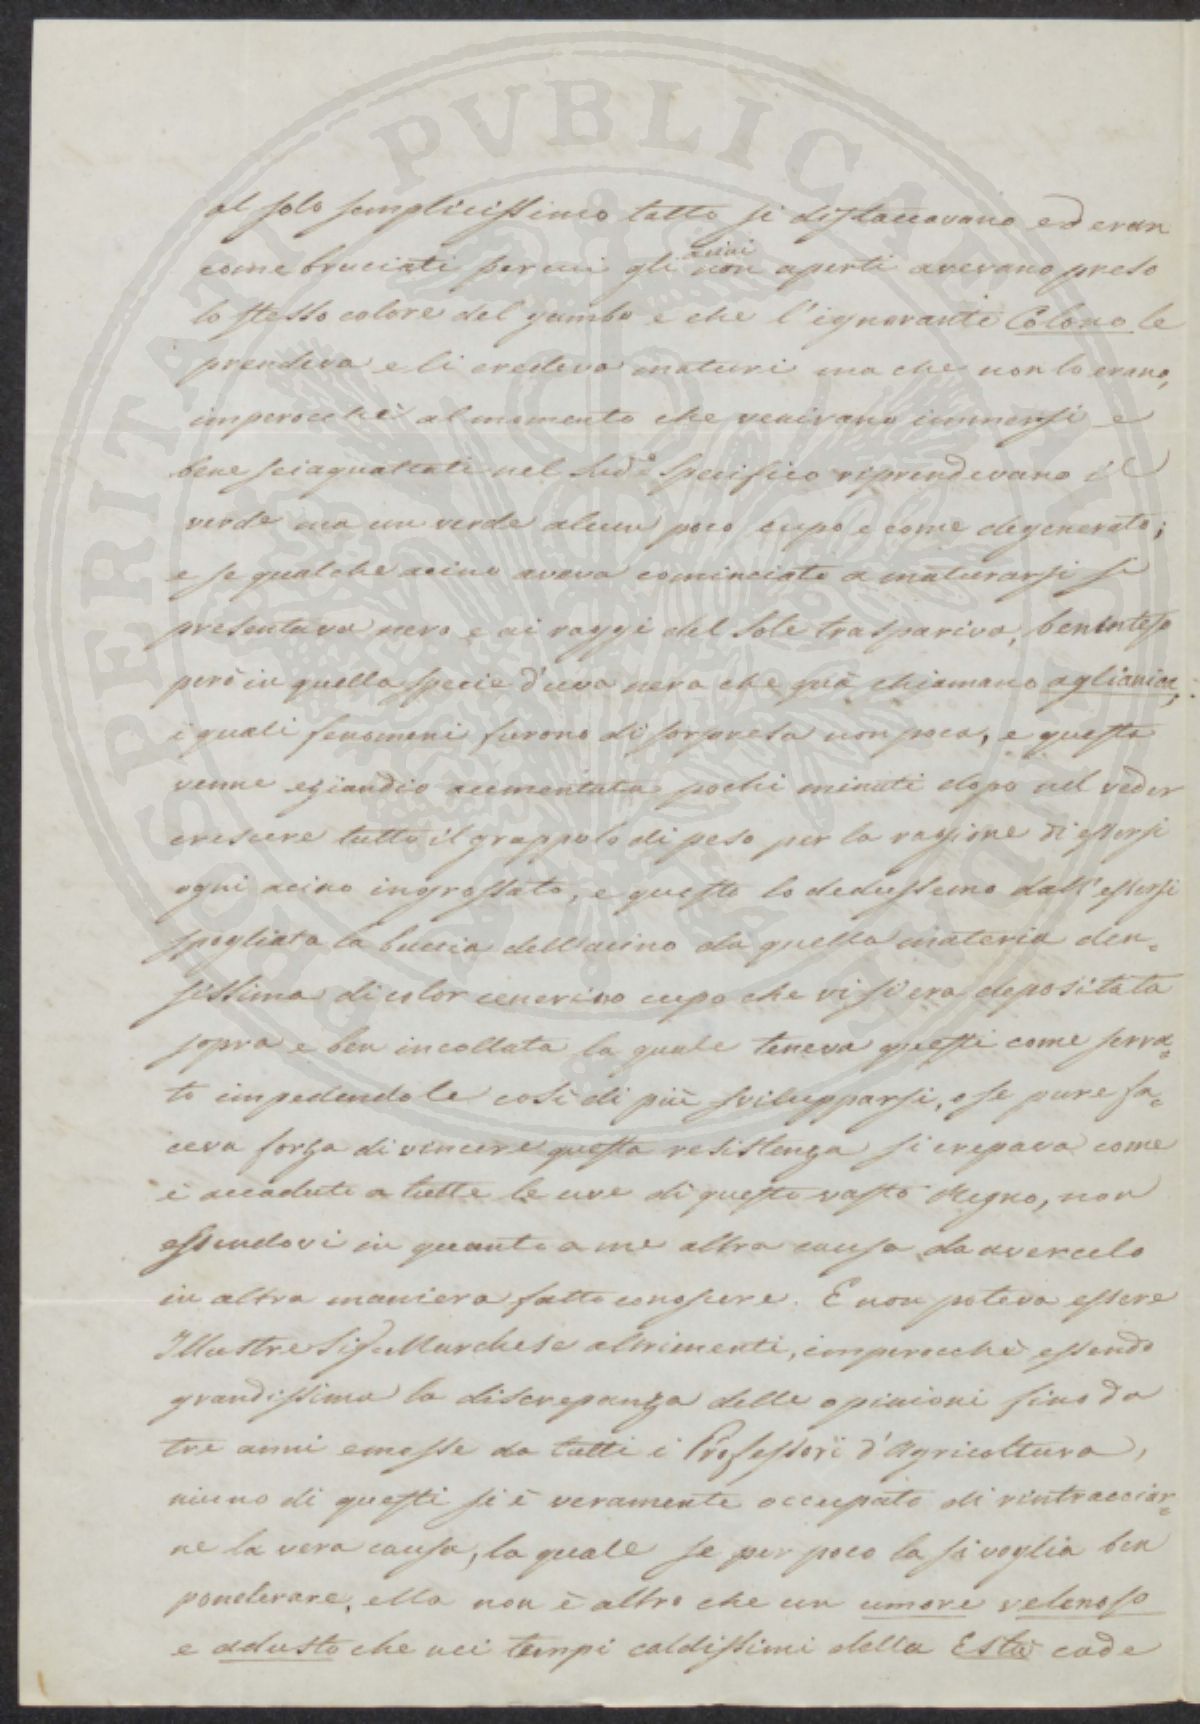 PROSPERITATI PVBLICAE AVGENDAE
al solo semplicissimo tatto si distaccavano ed eran
come bruciati per cui gli acini non aperti avevano preso
lo stesso colore del gambo e che l'ignorante Colono le
prendeva e li credeva maturi ma che non lo erano,
imperocchè al momento che venivano immersi e
bene sciaquattati nel Sud.º Specifico riprendevano il
verde ma un verde alcun poco cupo e come degenerato;
e se qualche acino aveva cominciato a maturarsi si
presentava nero e ai raggi del Sole traspariva, beninteso
però in quella specie d'uva nera che quà chiamano aglianica;
i quali fenomeni furono di sorpresa non poca, e questa
venne eziandio aumentata pochi minuti dopo nel veder
crescere tutto il grappolo di peso per la ragione di essersi
ogni acino ingrossato, e questo lo dedussimo dall'essersi
spogliata la buccia dell'acino da quella materia den-
sissima di color cenerino cupo che vi si era depositata
sopra e ben incollata la quale teneva questi come serra-
to impedendole così di più svilupparsi, o se pure fa-
ceva forza di vincere questa resistenza si crepava come
è accaduto a tutte le uve di questo vasto Regno, non
essendovi in quanto a me altra causa da avercelo
in altra maniera fatto conoscere. E non poteva essere
Illustre Sig. Marchese altrimenti, imperocchè essendo
grandissima la discrepanza delle opinioni fino da
tre anni emesse da tutti i Professori d'Agricoltura,
niuno di questi si è veramente occupato di rintracciar-
ne la vera causa, la quale se per poco la si voglia ben
ponderare, ella non è altro che un umore velenoso
e adusto che nei tempi caldissimi della Està cade